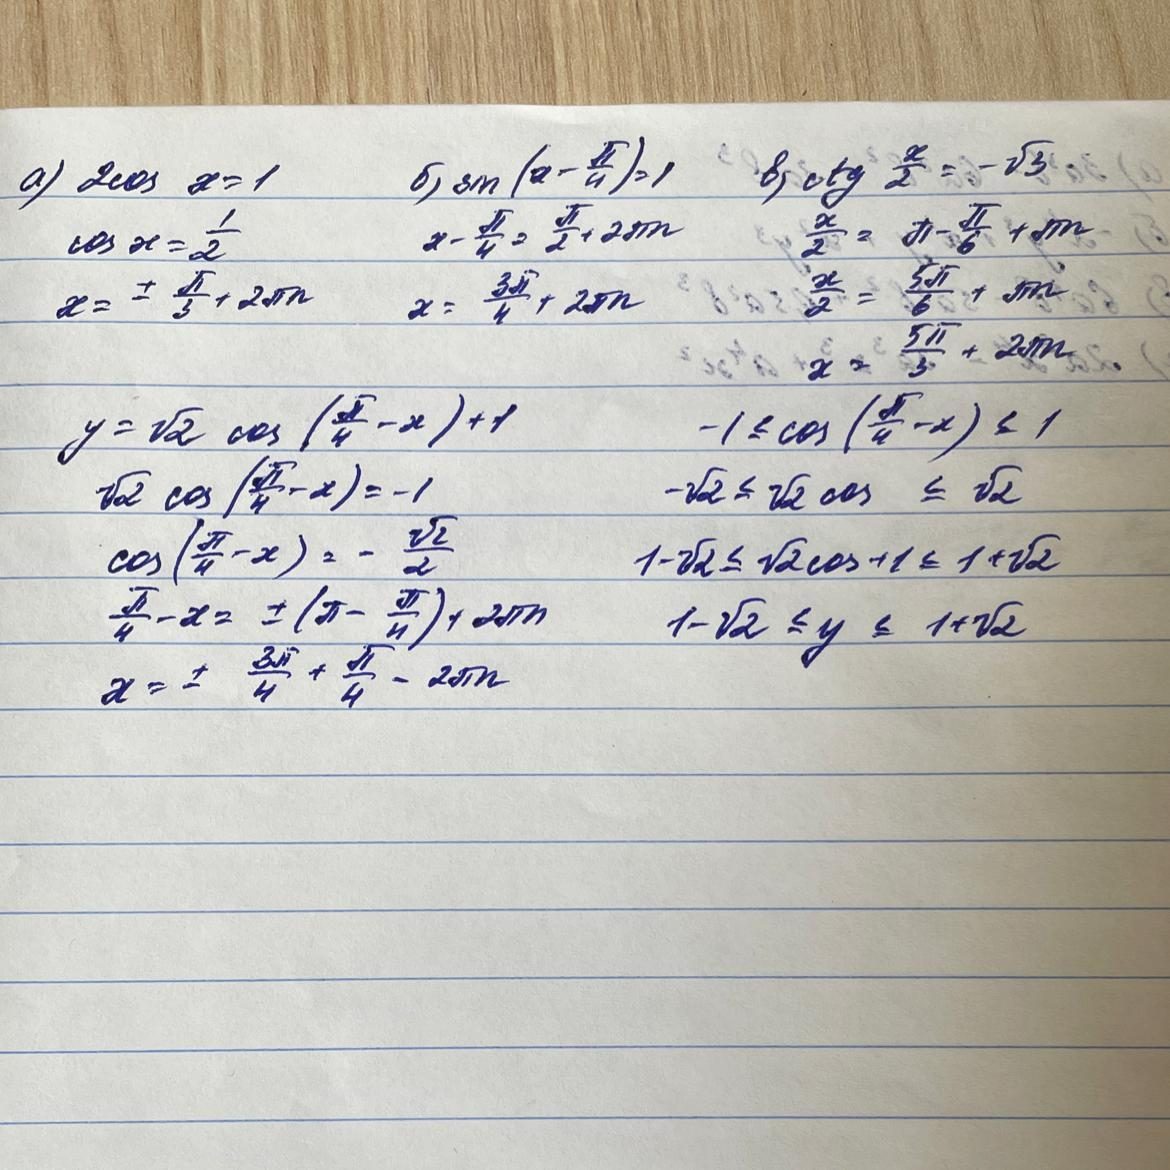 а) 2cos x = 1
cos x = 1/2
x = ± π/3 + 2πn
б) sin (x - π/4) = 1
x - π/4 = π/2 + 2πn
x = 3π/4 + 2πn
в) ctg x/2 = -√3
x/2 = π - π/6 + πn
x/2 = 5π/6 + πn
x = 5π/3 + 2πn
y = √2 cos (π/4 - x) + 1
√2 cos (π/4 - x) = -1
cos (π/4 - x) = - √2/2
π/4 - x = ± (π - π/4) + 2πn
x = ± 3π/4 + π/4 - 2πn
-1 ≤ cos (π/4 - x) ≤ 1
-√2 ≤ √2 cos ≤ √2
1-√2 ≤ √2 cos + 1 ≤ 1+√2
1-√2 ≤ y ≤ 1+√2